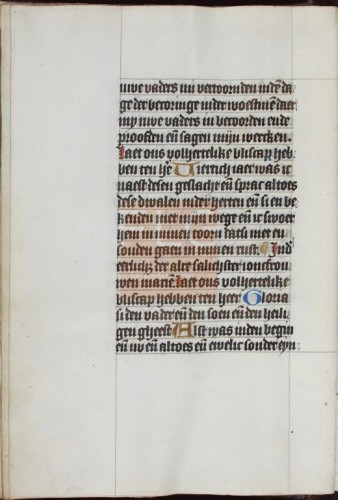 uwe vaders mi vertoornden inden da
ge der becoringe inder woestinen daer
my uwe vaders in becorden ende
proofden en̄ sagen mijn wercken.
Laet ons volhertelike bliscap heb
ben ten he Viertich iaer was ic
naest desen geslachte en̄ sprac altoes
dese dwalen inder herten en̄ si en be
kenden niet mijn wege en̄ ic swoer
hem in minen toorn dat si niet en
souden gaen in minen rust. Ind
eerlicheit der alre salichster ioncfrou
wen marien Laet ons volhertelike
bliscap hebben ten heer Gloria
si den vader en̄ den soen en̄ den heili
gen gheest Alst was inden begin
en̄ nv en̄ altoes en̄ ewelic sonder eyn